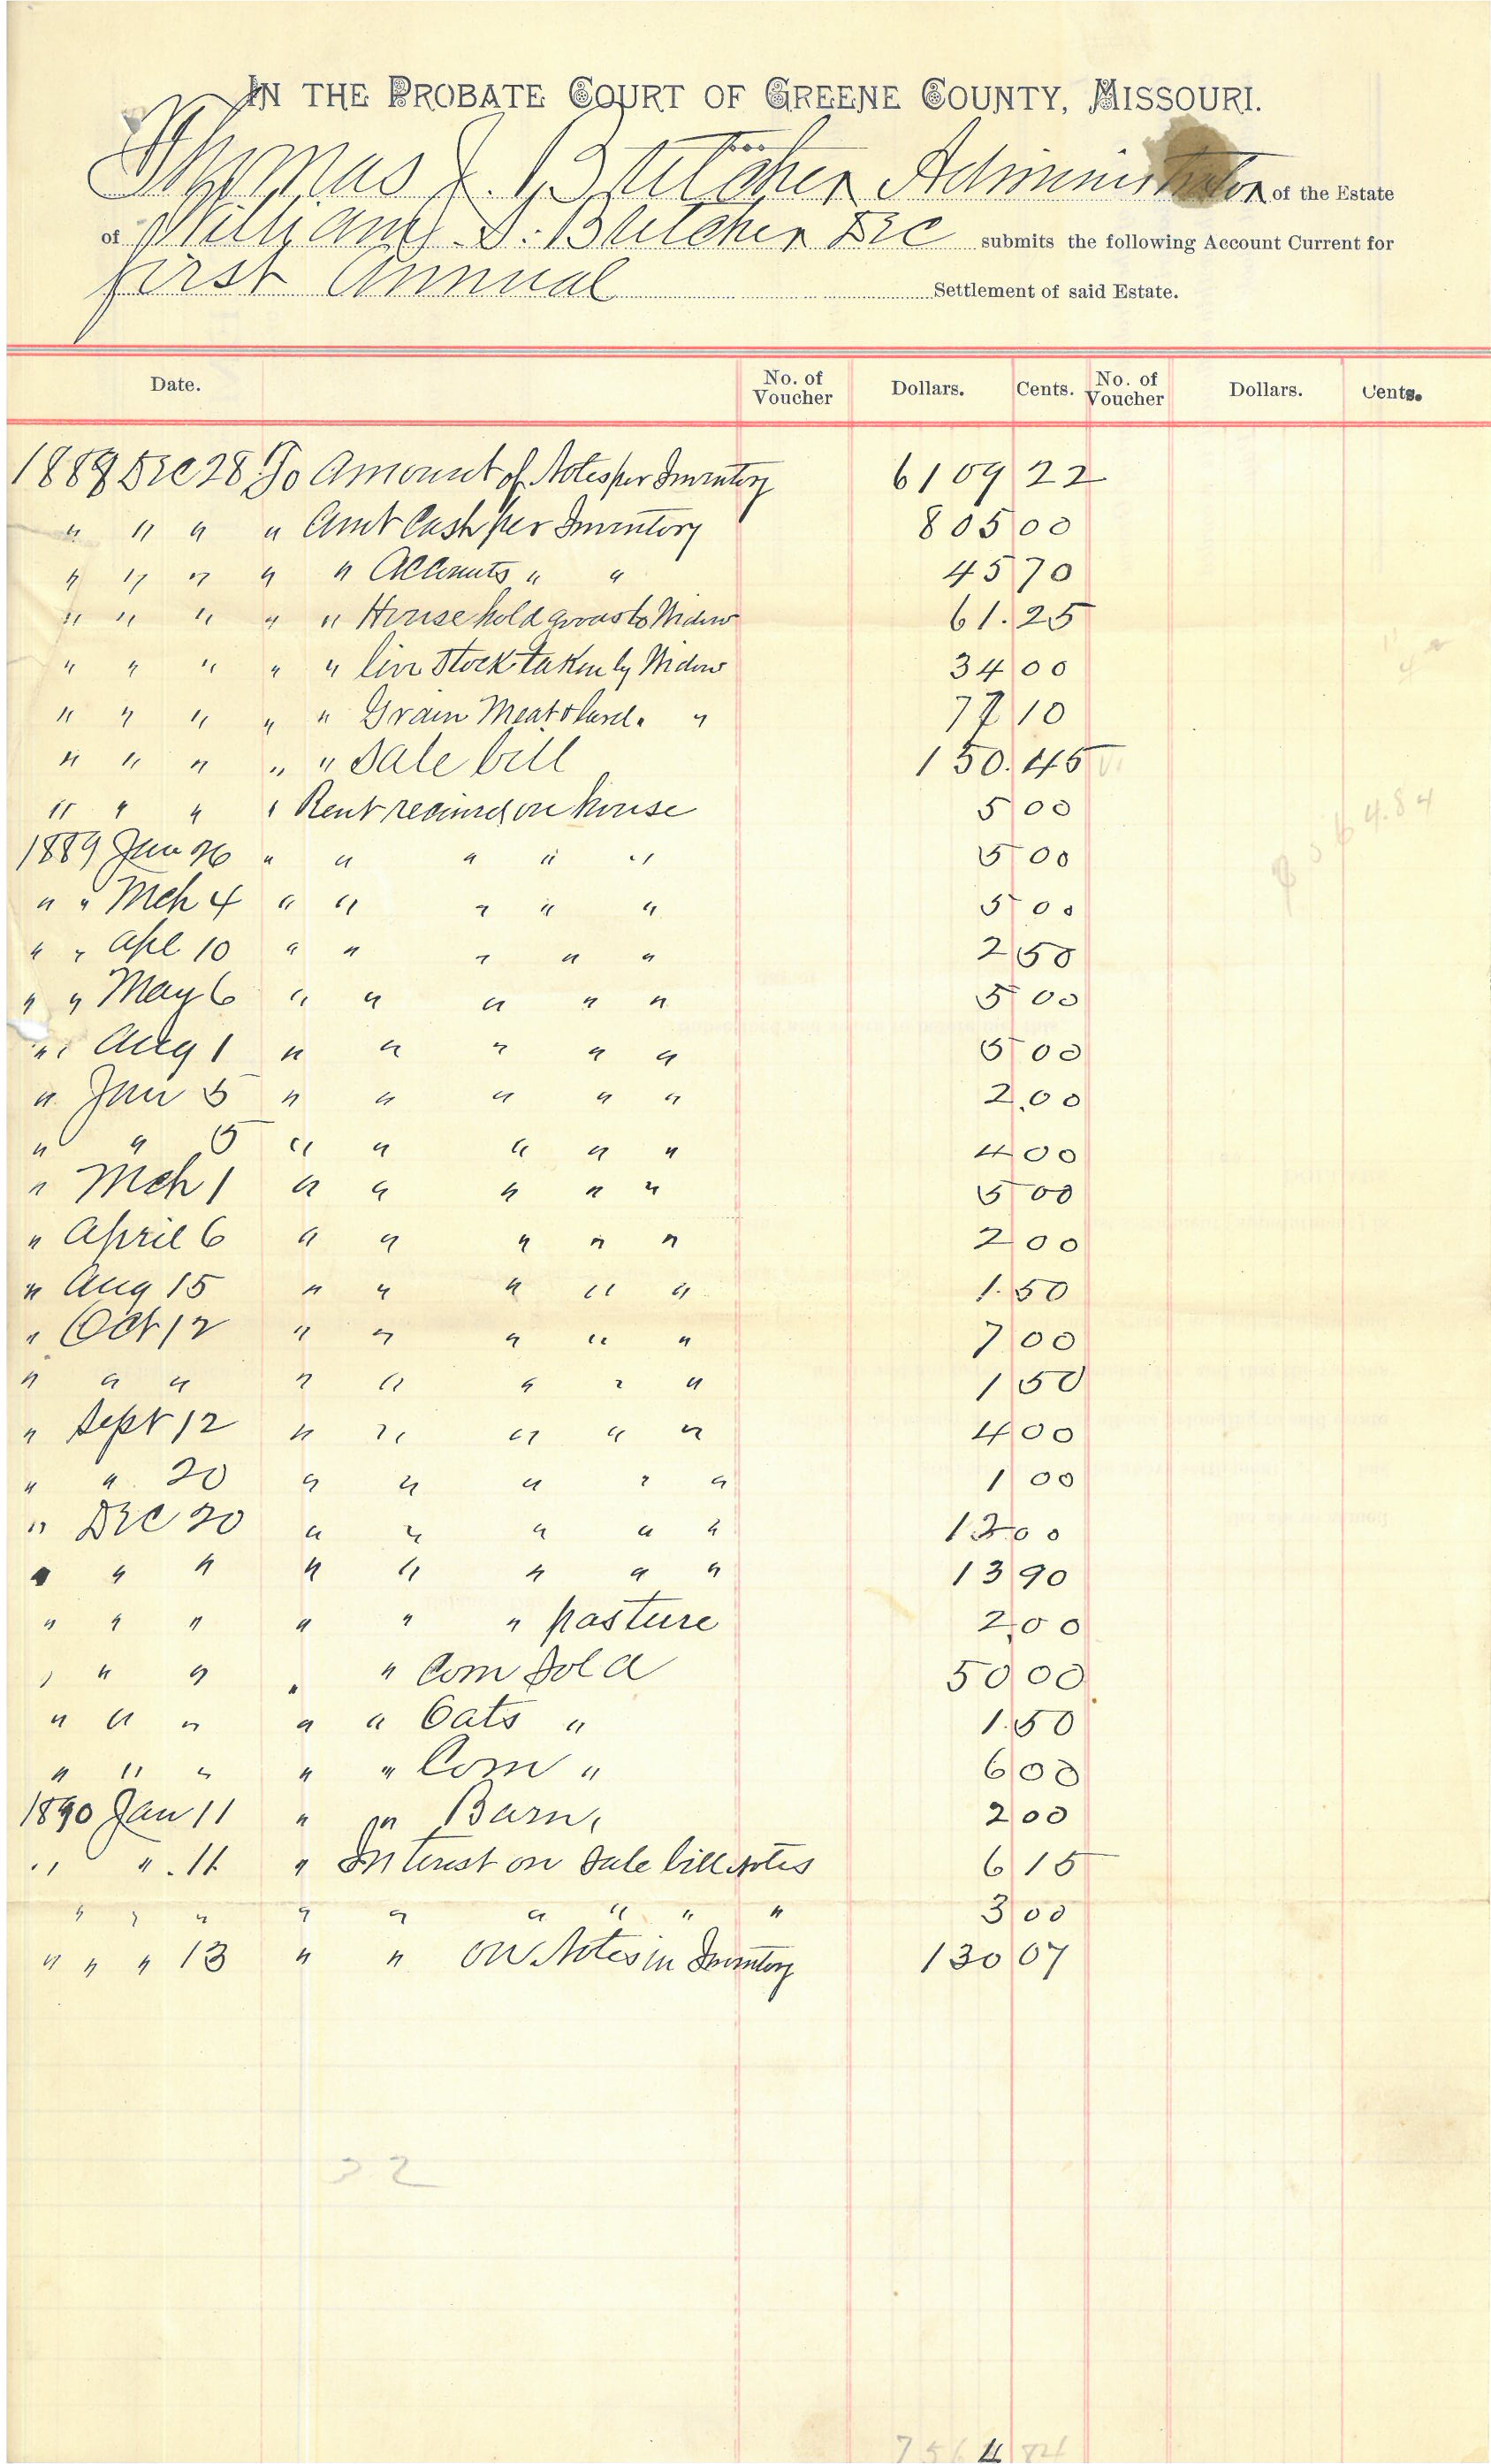 IN THE PROBATE COURT OF GREENE COUNTY, MISSOURI.
Thomas J. Butcher Administrator of the Estate
of William S. Butcher Dec submits the following Account Current for
first Annual Settlement of said Estate.
Date. No. of Voucher Dollars. Cents. No. of Voucher Dollars. Cents.
1888 Dec 28 To Amount of Notes per Inventory 6109 22
" " " " Amt Cash per Inventory 805 00
" " " " " Accounts " " 45 70
" " " " " House hold goods to Widow 61.25
" " " " " live Stock taken by Widow 34 00
" " " " " Grain Meat & Lard. " 77 10
" " " " " Sale bill 150.45
" " " " Rent received on house 5 00
1889 Jan 26 " " " " " 5 00
" " Mch 4 " " " " " 5 00
" " Apl 10 " " " " " 2 50
" " May 6 " " " " " 5 00
" " Aug 1 " " " " " 5 00
" Jan 5 " " " " " 2.00
" " 5 " " " " " 4 00
" Mch 1 " " " " " 5 00
" April 6 " " " " " 2 00
" Aug 15 " " " " " 1.50
" Oct 12 " " " " " 7 00
" " " " " " " " 1 50
" Sept 12 " " " " " 4 00
" " 20 " " " " " 1 00
" Dec 20 " " " " " 12 00
" " " " " " " " 13 90
" " " " " " pasture 2.00
" " " " " Corn Sold 50 00
" " " " " Oats " 1.50
" " " " " Corn " 6 00
1890 Jan 11 " on Barn, 2 00
" " . 11 " Interest on Sale bill Notes 6 15
" " " " " " " " " 3 00
" " " 13 " " on Notes in Inventory 130 07
32
7564 84